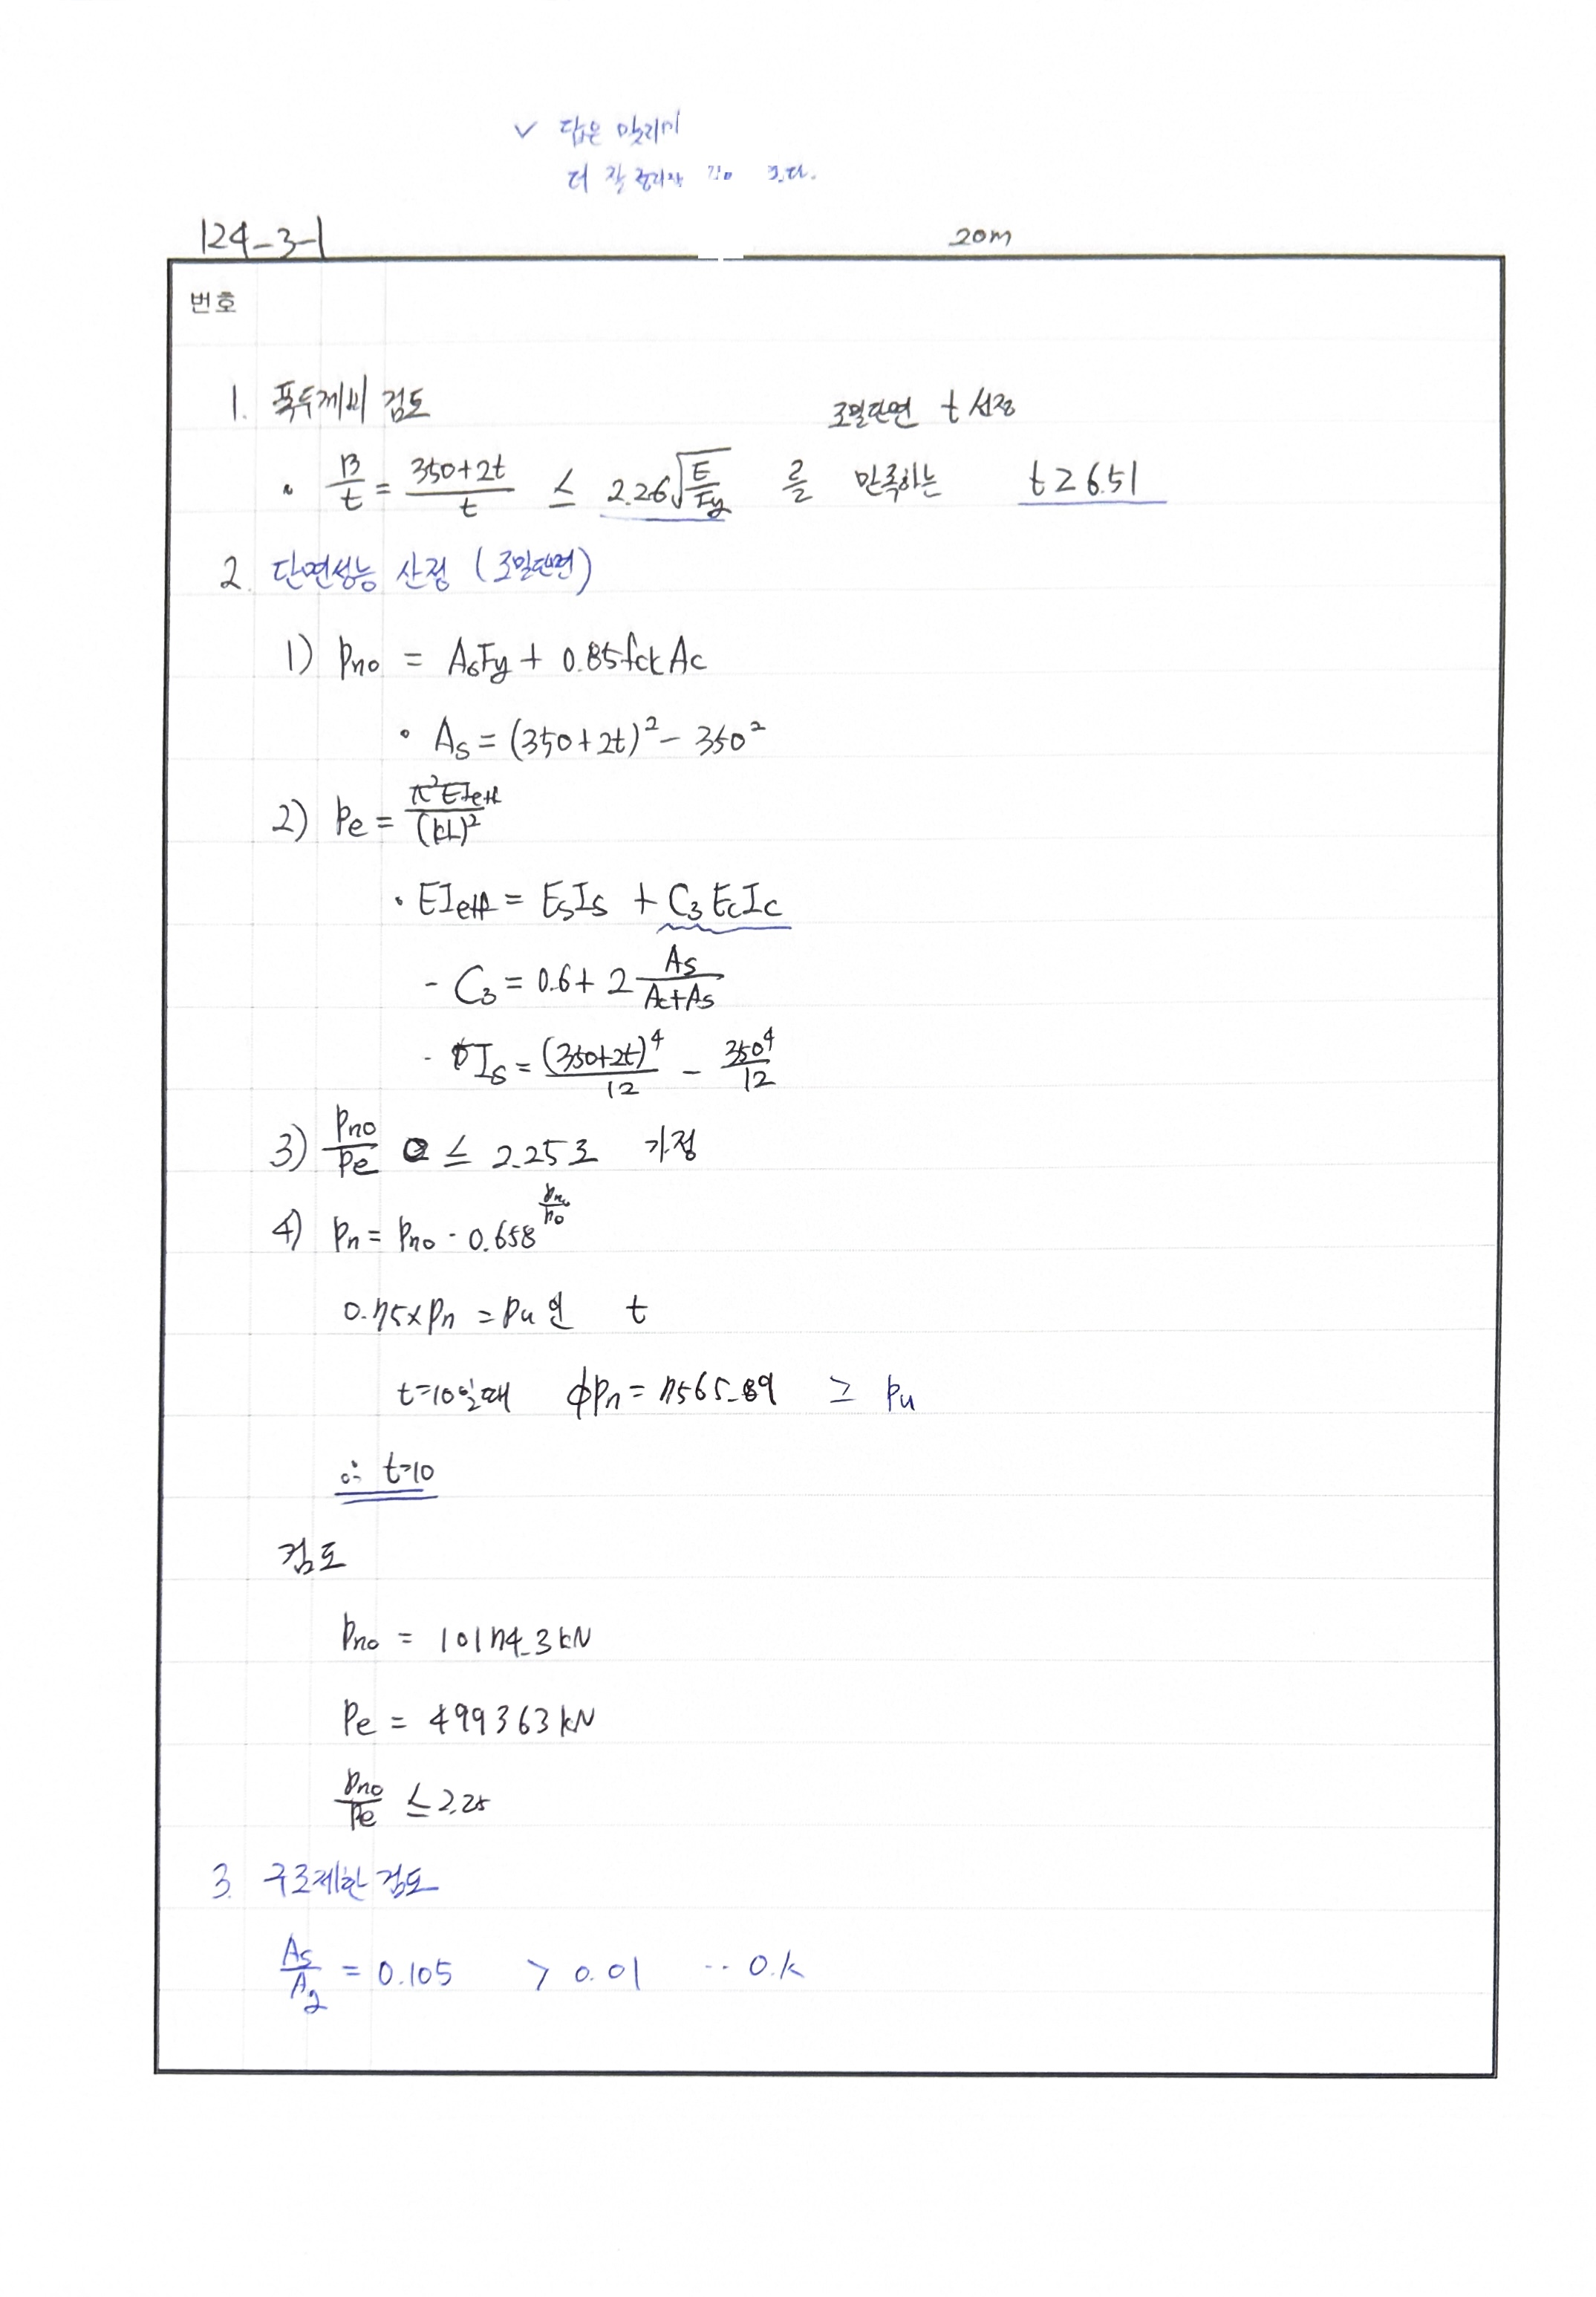 ✓ 답은 맞지만
더 잘 정리
124-3-1
20m
번호
1. 폭두께비 검토
조밀단면 t 산정
• B/t = (350+2t)/t ≤ 2.26√(E/Fy) 를 만족하는 t≥6.51
2. 단면성능 산정 (조밀단면)
1) Pno = AsFy + 0.85fckAc
• As = (350+2t)² - 350²
2) Pe = π²EIeff/(kL)²
• EIeff = EsIs + C3EcIc
- C3 = 0.6 + 2 As/(Ac+As)
- Is = (350+2t)⁴/12 - 350⁴/12
3) Pno/Pe ≤ 2.25로 가정
4) Pn = Pno · 0.658
0.75×Pn = Pu인 t
t=10일때 φPn = 7565.89 ≥ Pu
∴ t=10
검토
Pno = 10174.3kN
Pe = 499363kN
Pno/Pe ≤ 2.25
3. 구조제한 검토
As/Ag = 0.105 > 0.01 ·· O.k